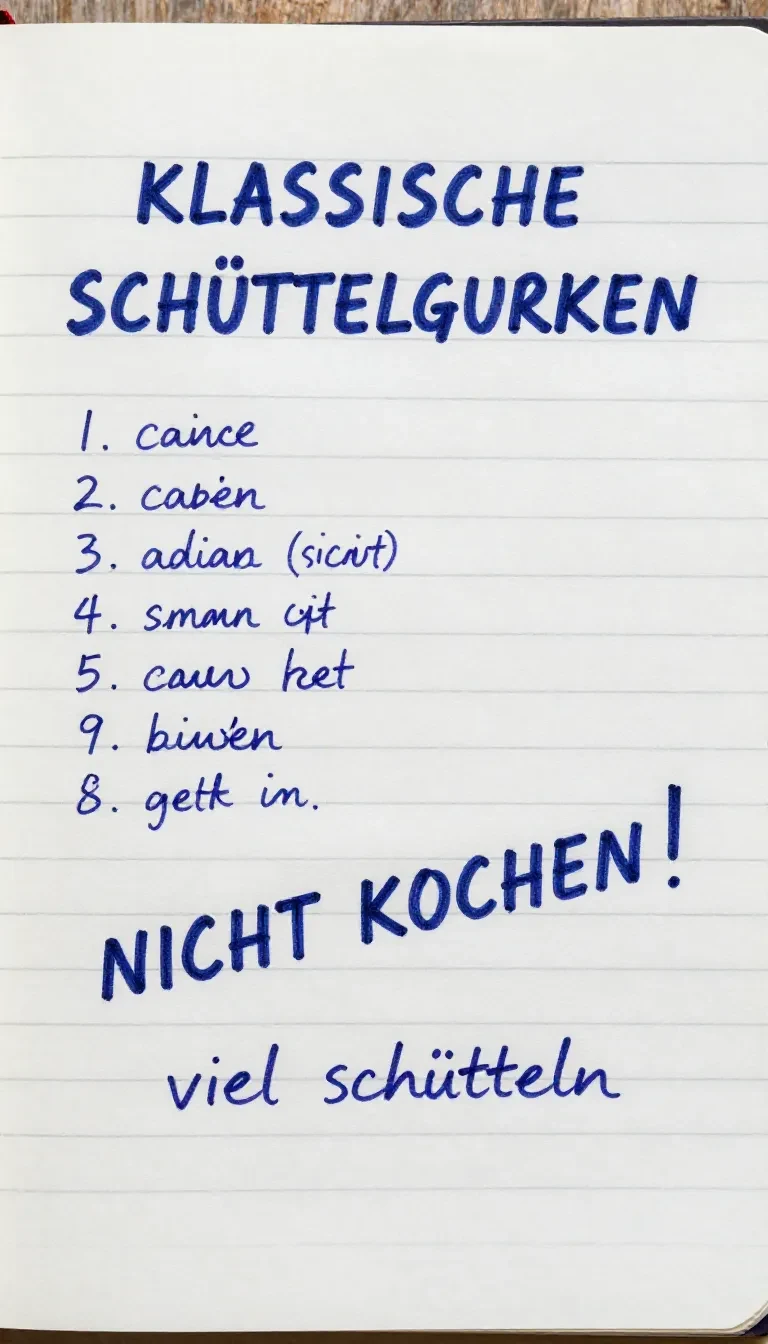 KLASSISCHE
SCHÜTTELGURKEN
1. caince
2. cabén
3. adian (sicrit)
4. sman
5. ket
9. biwén
8. gettk in.
NICHT KOCHEN!
viel schütteln